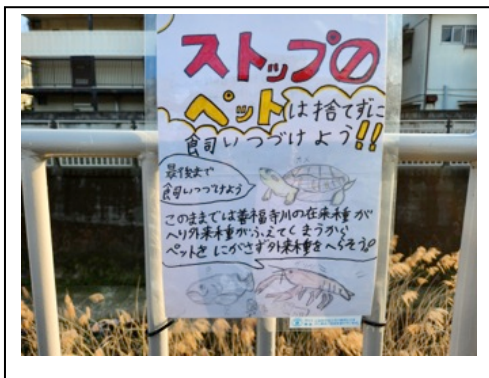 ストップの
ペットは捨てずに
飼いつづけよう!!
最後まで
飼いつづけよう
このままでは善福寺川の在来種が
へり外来種がふえてしまうから
ペットをにがさず外来種をへらそう。